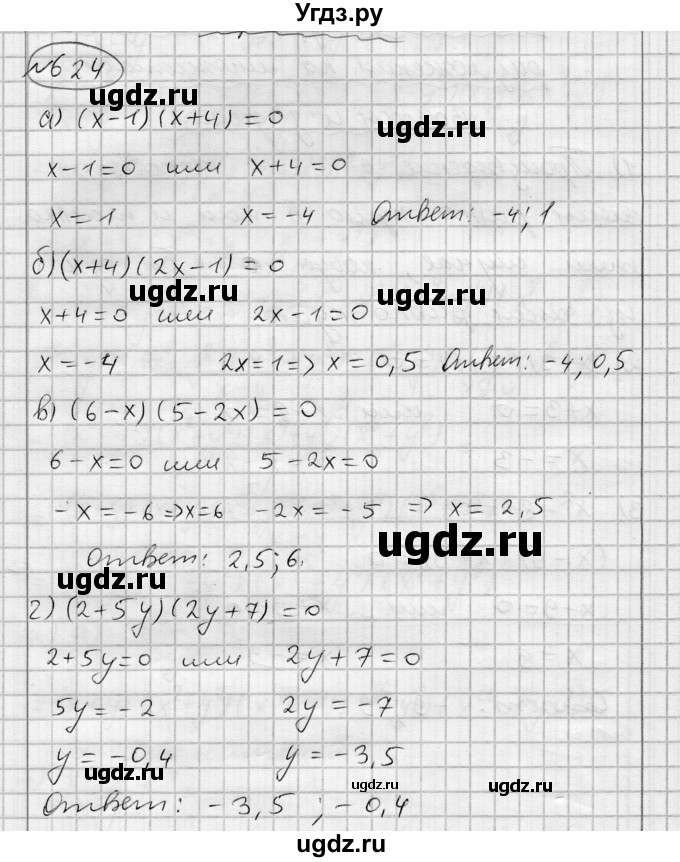 Угдз.ру
№624
ugdz.ru
а) (x-1)(x+4)=0
ugdz.ru
x-1=0 или x+4=0
x=1 x=-4 Ответ: -4; 1
б) (x+4)(2x-1)=0
ugdz.ru ugdz.ru
x+4=0 или 2x-1=0
x=-4 2x=1=> x=0,5 Ответ: -4; 0,5
в) (6-x)(5-2x)=0
6-x=0 или 5-2x=0
-x=-6=>x=6 -2x=-5 => x=2,5
ugdz.ru
Ответ: 2,5; 6.
ugdz.ru
г) (2+5y)(2y+7)=0
2+5y=0 или 2y+7=0
5y=-2 2y=-7
y=-0,4 y=-3,5
ugdz.ru ugdz.ru ugdz.ru
Ответ: -3,5 ; -0,4
ugdz.ru